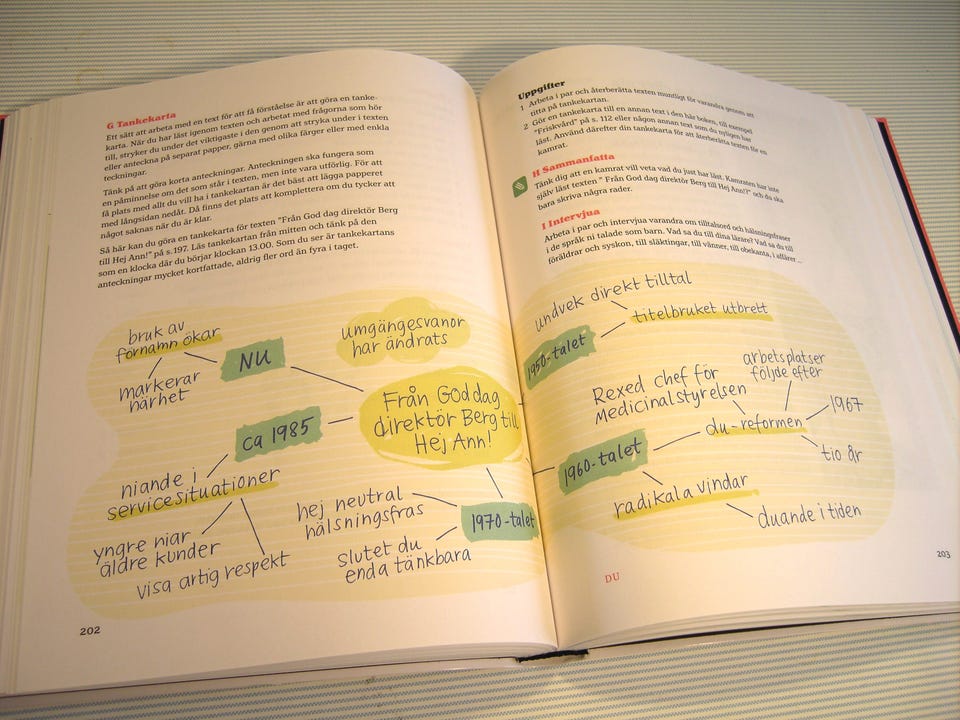 G Tankekarta
Ett sätt att arbeta med en text för att få förståelse är att göra en tanke-
karta. När du har läst igenom texten och arbetat med frågorna som hör
till, stryker du under det viktigaste i den genom att stryka under i texten
eller anteckna på separat papper, gärna med olika färger eller med enkla
teckningar.
Tänk på att göra korta anteckningar. Anteckningen ska fungera som
en påminnelse om det som står i texten, men inte vara utförlig. För att
få plats med allt du vill ha i tankekartan är det bäst att lägga papperet
med långsidan nedåt. Då finns det plats att komplettera om du tycker att
något saknas när du är klar.
Så här kan du göra en tankekarta för texten "Från God dag direktör Berg
till Hej Ann!" på s. 197. Läs tankekartan från mitten och tänk på den
som en klocka där du börjar klockan 13.00. Som du ser är tankekartans
anteckningar mycket kortfattade, aldrig fler ord än fyra i taget.
bruk av
förnamn ökar
NU
markerar
närhet
umgängesvanor
har ändrats
Från God dag
direktör Berg till
Hej Ann!
ca 1985
niande i
servicesituationer
yngre niar
äldre kunder
visa artig respekt
hej neutral
hälsningsfras
1970-talet
slutet du
enda tänkbara
202
Uppgifter
1 Arbeta i par och återberätta texten muntligt för varandra genom att
titta på tankekartan.
2 Gör en tankekarta till en annan text i den här boken, till exempel
"Friskvård" på s. 112 eller någon annan text som du nyligen har
läst. Använd därefter din tankekarta för att återberätta texten för en
kamrat.
H Sammanfatta
Tänk dig att en kamrat vill veta vad du just har läst. Kamraten har inte
själv läst texten "Från God dag direktör Berg till Hej Ann!" och du ska
bara skriva några rader.
I Intervjua
Arbeta i par och intervjua varandra om tilltalsord och hälsningsfraser
i de språk ni talade som barn. Vad sa du till dina lärare? Vad sa du till
föräldrar och syskon, till släktingar, till vänner, till obekanta, i affärer ...
undvek direkt tilltal
titelbruket utbrett
1950-talet
arbetsplatser
följde efter
Rexed chef för
Medicinalstyrelsen
1967
du-reformen
tio år
1960-talet
radikala vindar
duande i tiden
DU
203